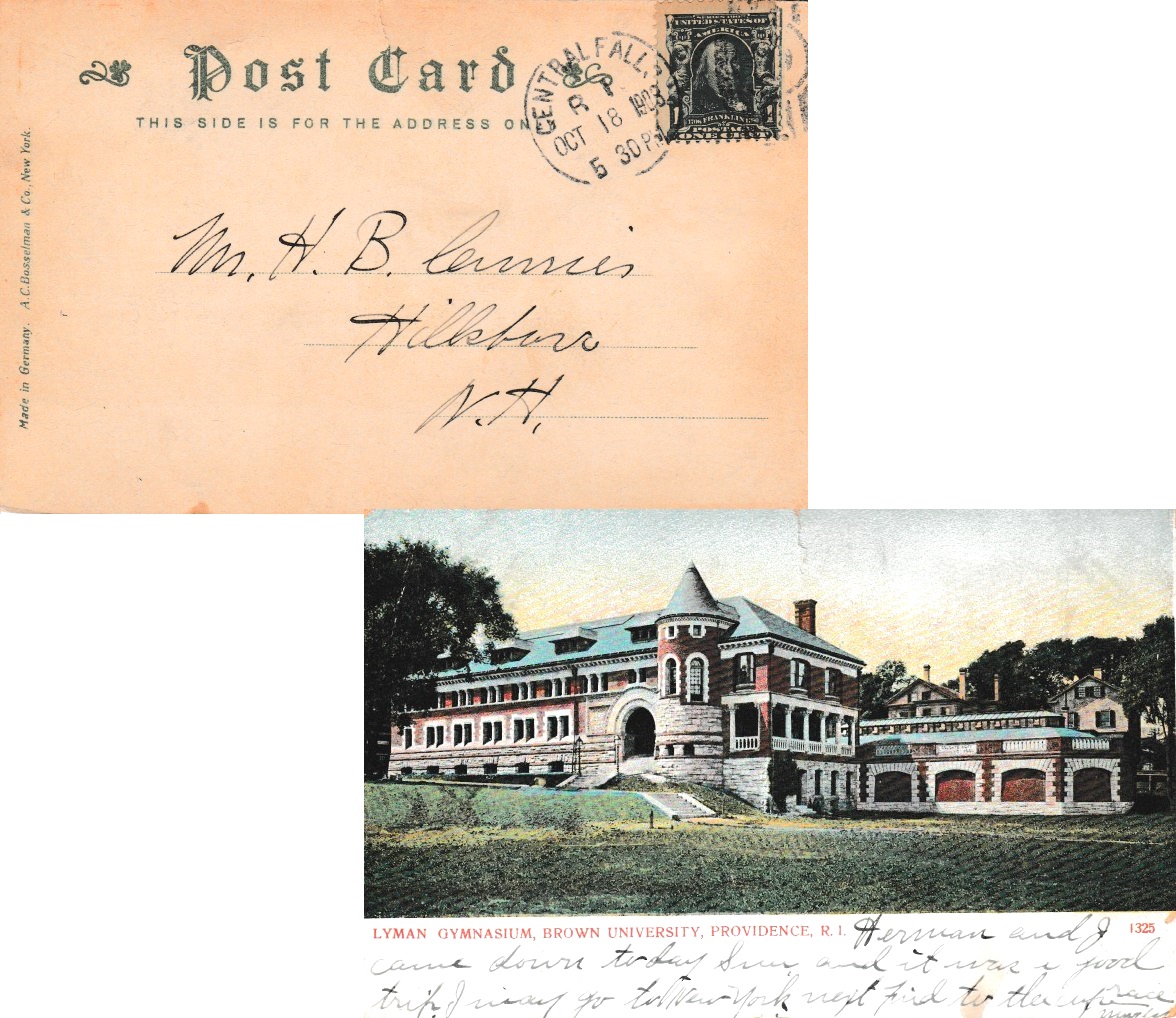 Post Card
THIS SIDE IS FOR THE ADDRESS ON
CENTRAL FALL
R
OCT 18 1903
5 30 PM
SERIES 1902
UNITED STATES OF
AMERICA
FRANKLIN
POSTAGE
ONE CENT
Made in Germany. A.C. Bosselman & Co., New York.
Mr. H. B.
Hillsboro
N.H.
LYMAN GYMNASIUM, BROWN UNIVERSITY, PROVIDENCE, R. I. Herman and I 1325
came down today Sun, and it was a good
trip I may go to New York next to the